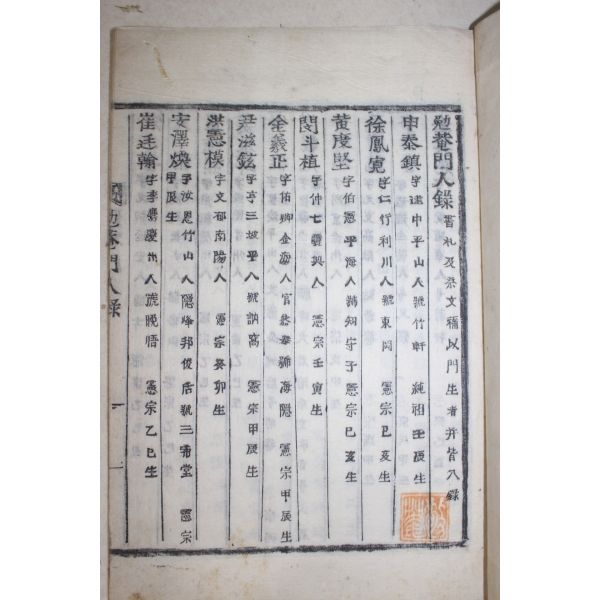 勉菴門人錄 書札及祭文稱以門生者并皆入錄
申泰鎭 字 中平山人號竹軒 純祖壬辰生
徐鳳寬 字仁行利川人號東岡 憲宗己亥生
黃度堅 字伯憲平海人號知守子 憲宗己亥生
閔斗植 字仲七驪興人 憲宗壬寅生
金義正 字佑卿金海人官 號海隱 憲宗甲辰生
尹滋鉉 字亨三坡平人號訥窩 憲宗甲辰生
洪憲模 字文郁南陽人 憲宗癸卯生
安澤煥 字汝恩竹山人隱峰邦俊后號三 堂 憲宗
甲辰生
崔廷翰 字 慶州人號晩悟 憲宗乙巳生
勉菴門人錄